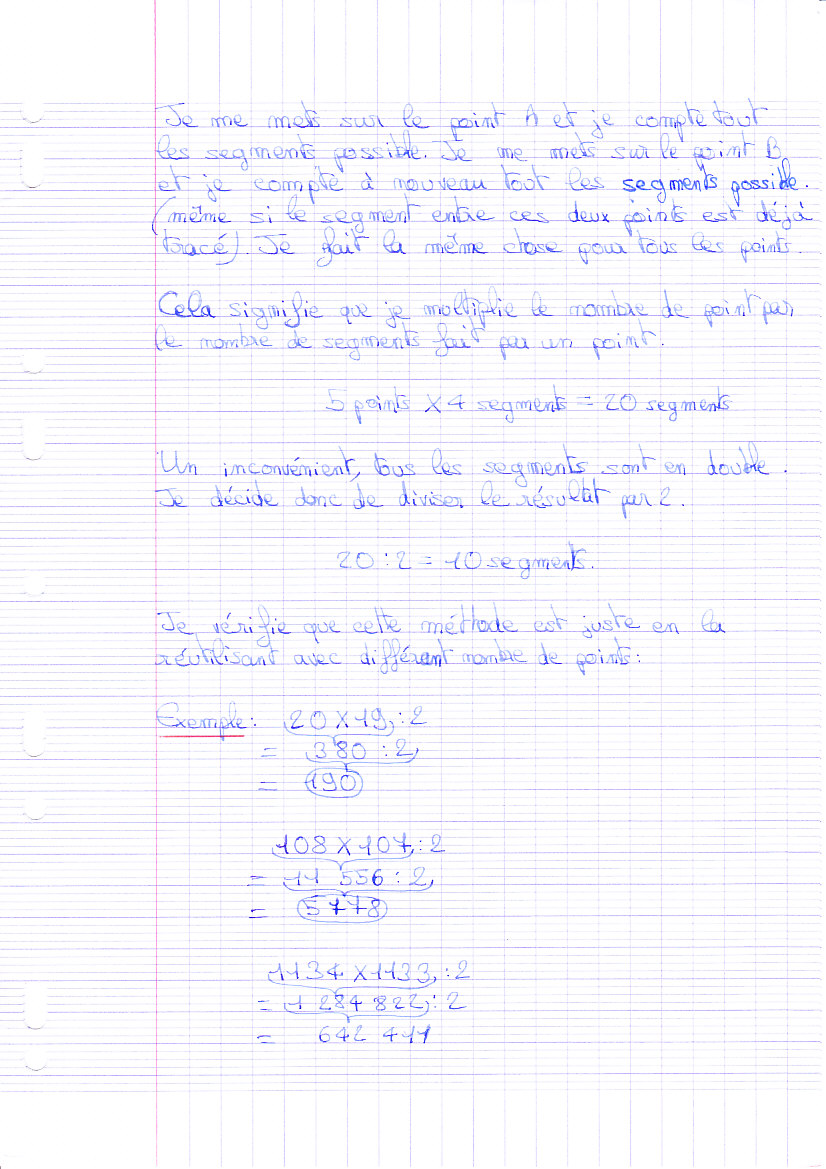 Je me mets sur le point A et je compte tout
les segments possible. Je me mets sur le point B
et je compte à nouveau tout les segments possible.
(même si le segment entre ces deux points est déjà
tracé). Je fait la même chose pour tous les points.
Cela signifie que je moltiplie le nombre de point par
le nombre de segments fait par un point.
5 points X 4 segments = 20 segments
Un inconvénient, tous les segments sont en double.
Je décide donc de diviser le résultat par 2.
20 : 2 = 10 segments.
Je vérifie que cette méthode est juste en la
réutilisant avec différent nombre de points :
Exemple : 20 X 19 : 2
= 380 : 2
= 190
108 X 107 : 2
= 11 556 : 2
= 5778
1134 X 1133 : 2
= 1 284 822 : 2
= 642 411